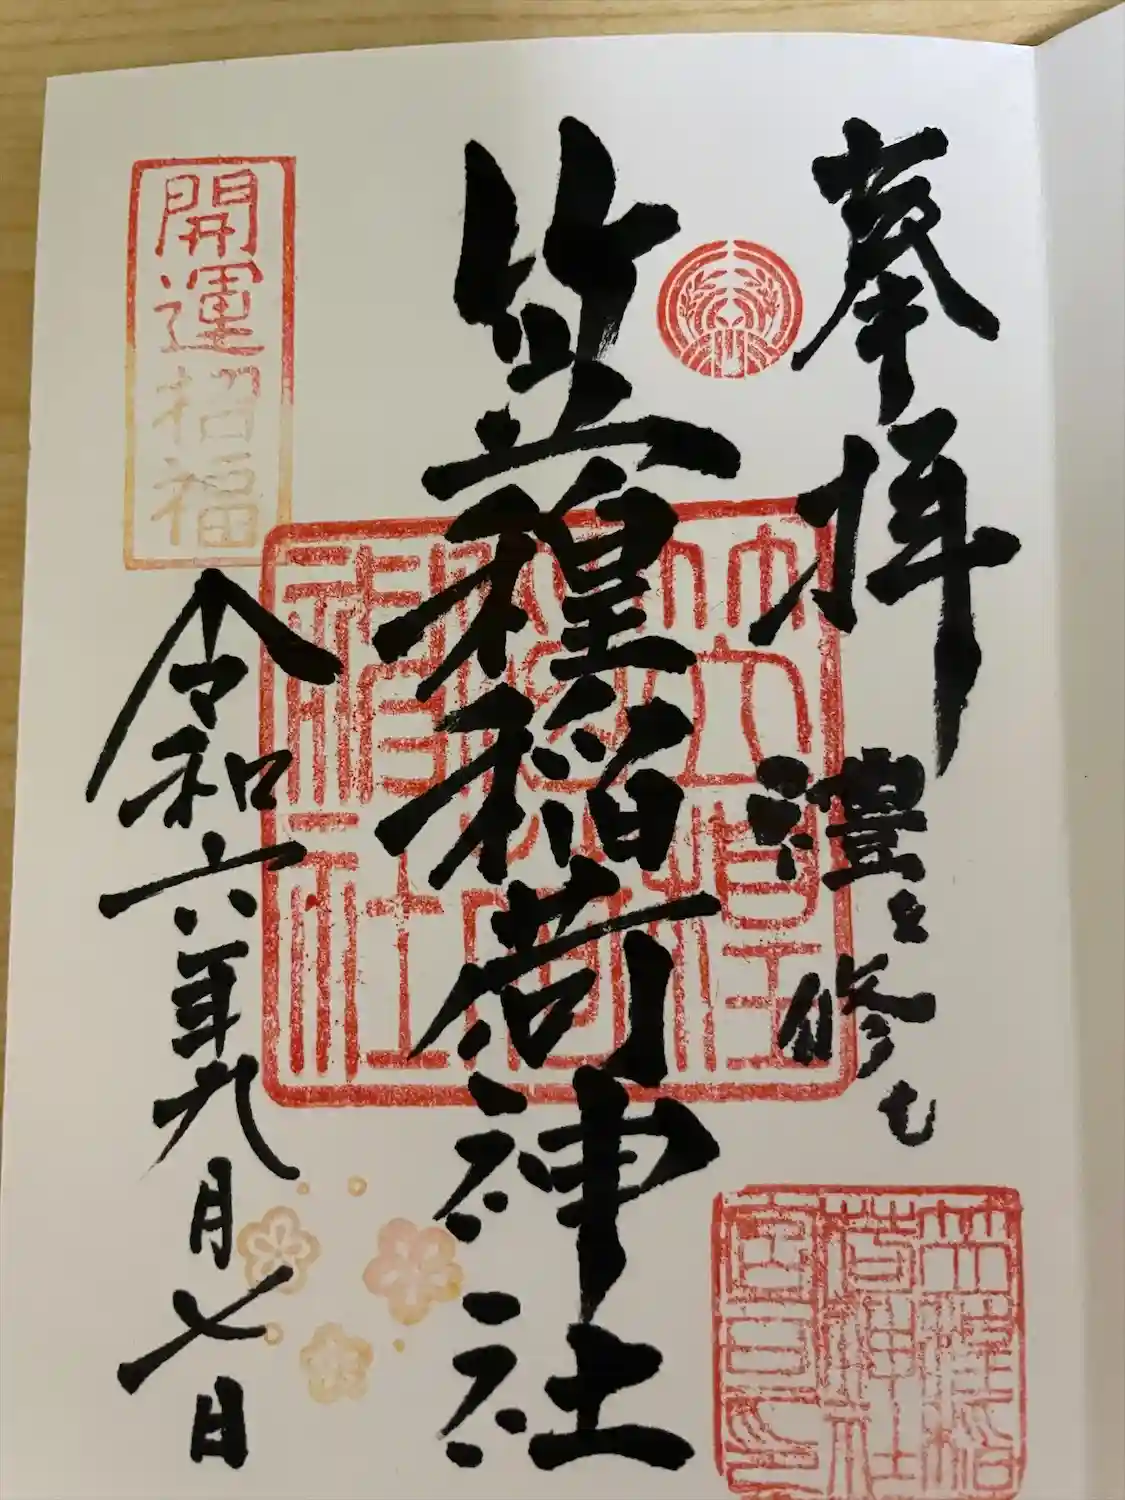 奉拝
笠䅣稲荷神社
開運招福
令和六年九月七日
笠䅣稲荷神社
笠䅣稲荷神社宮司之印